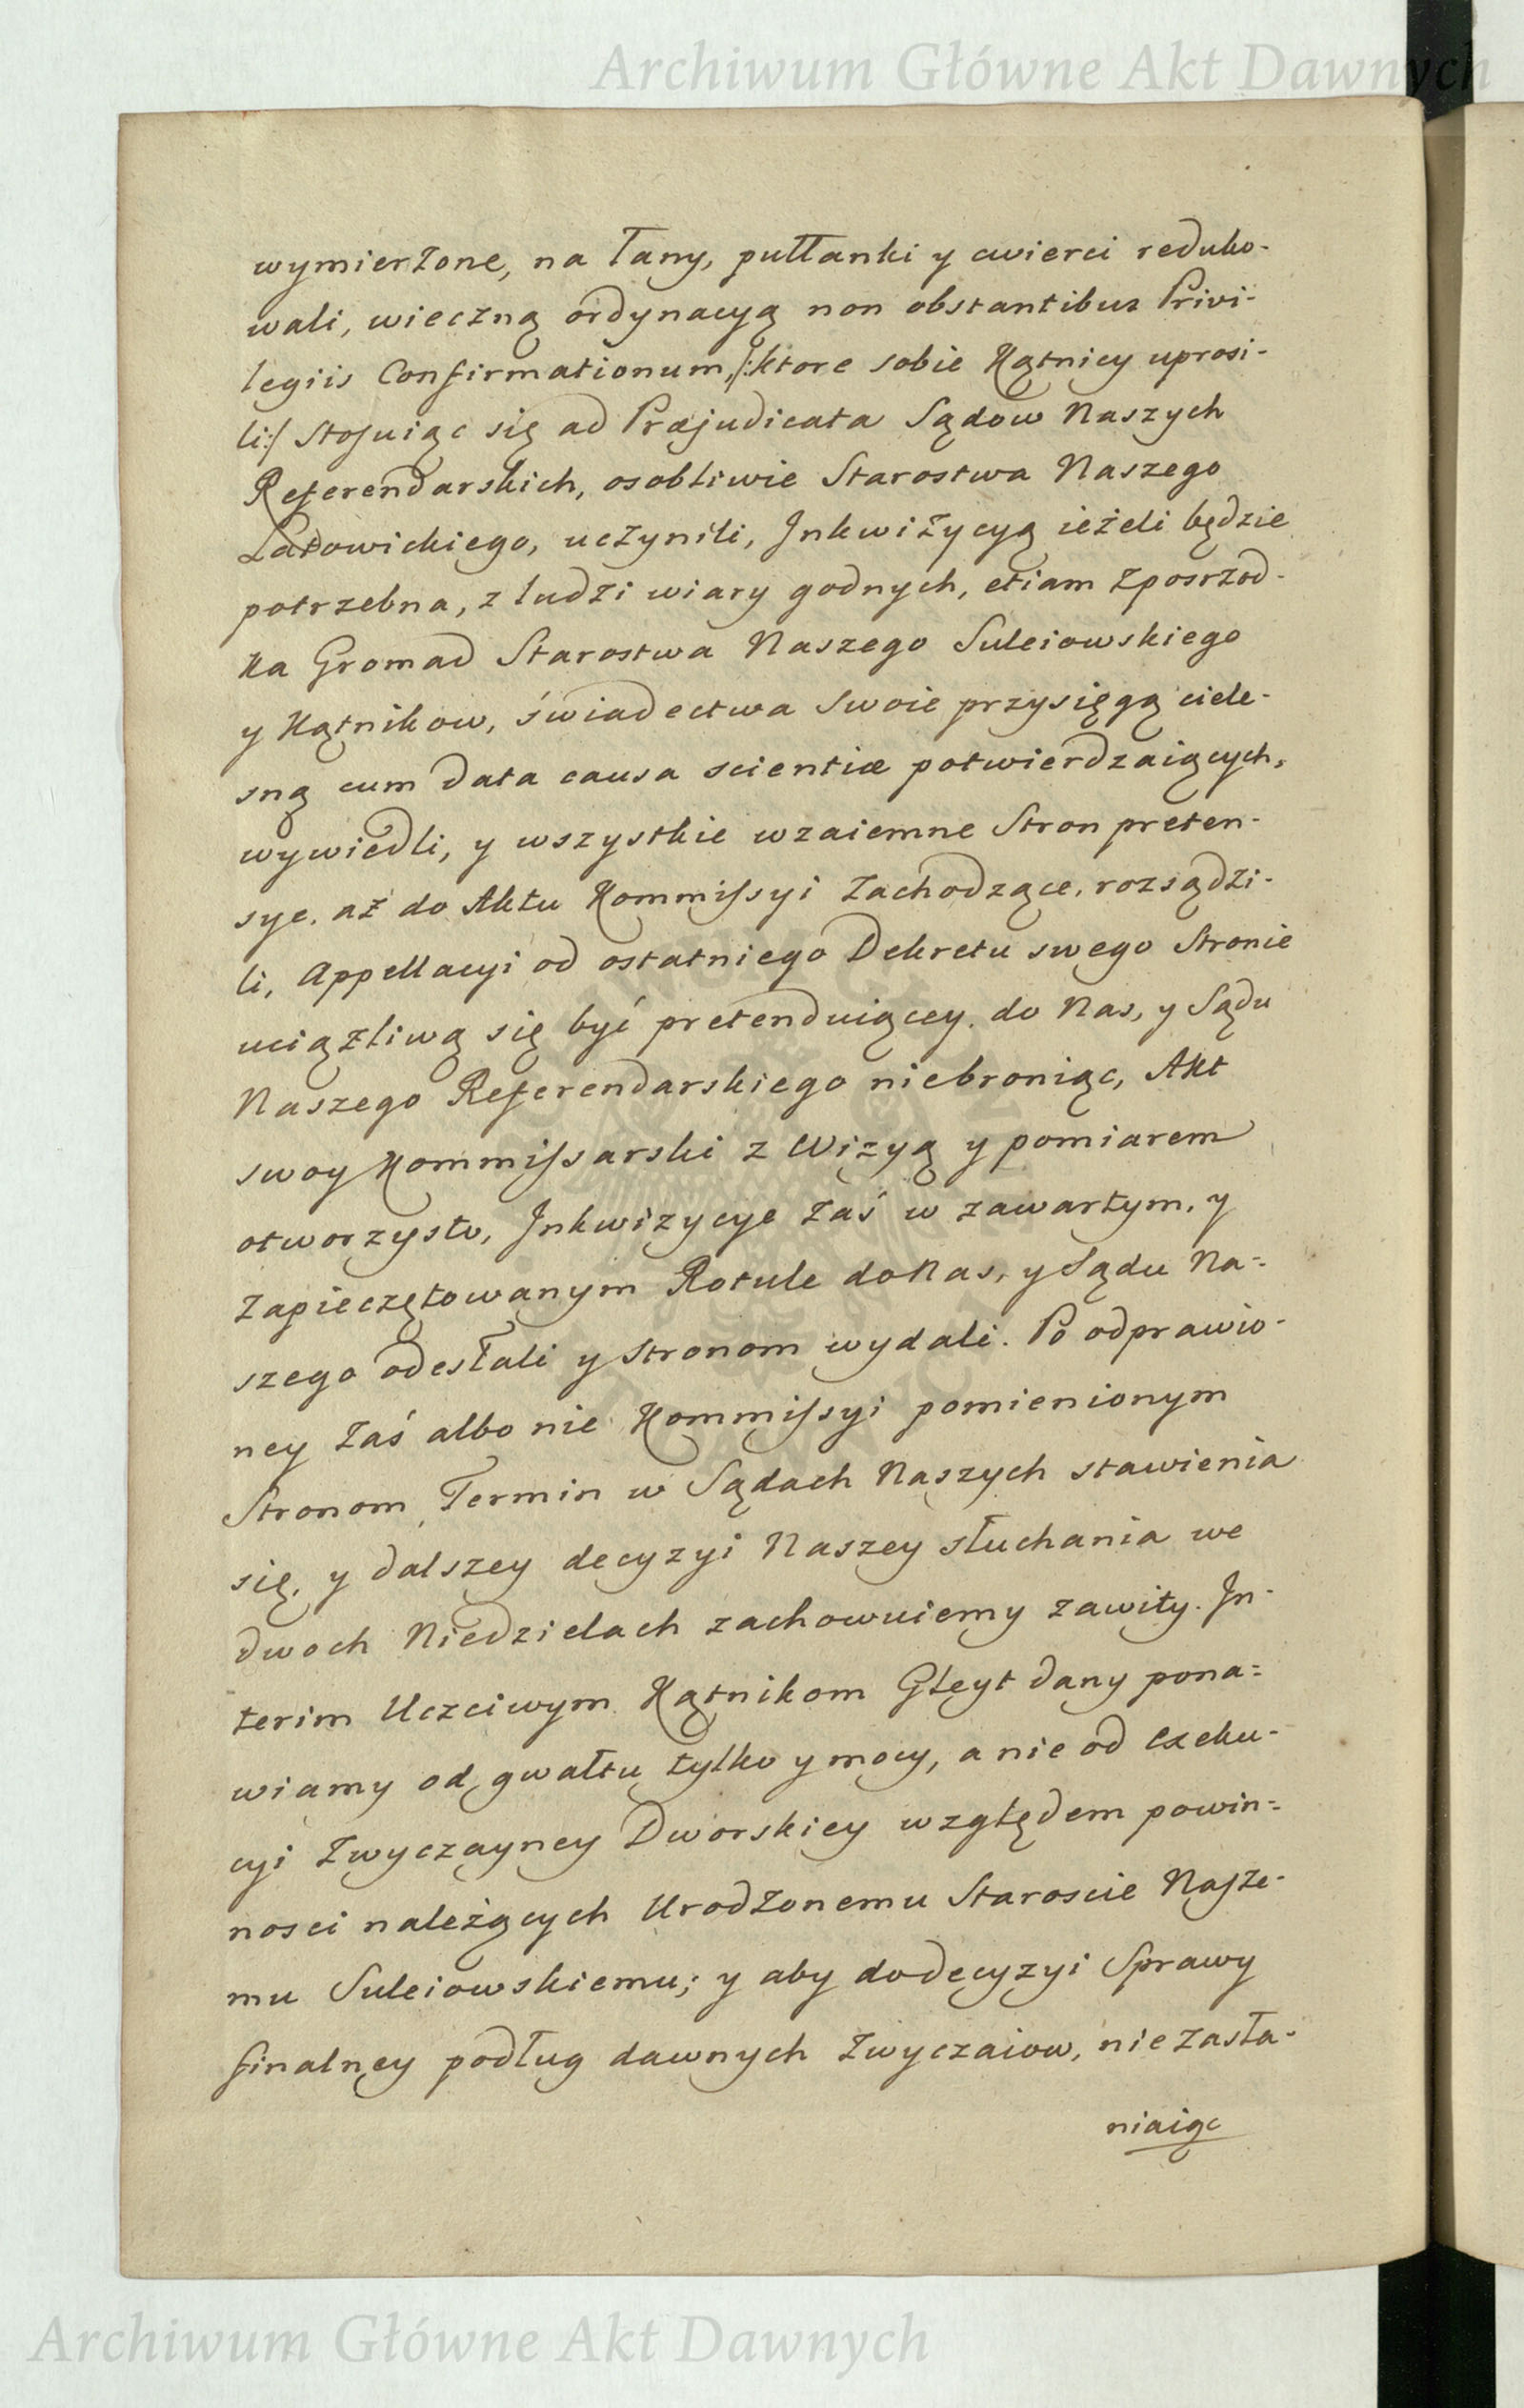 Archiwum Główne Akt Dawnych
wymierzone, na Łany, pułłanki y cwierci reduko-
wali, wieczną ordynacyą non obstantibus Privi-
legiis Confirmationum, /:ktore sobie Kątnicy uprosi-
li:/ stosuiąc się ad Præjudicata Sądow Naszych
Referendarskich, osobliwie Starostwa Naszego
Latowickiego, uczynili, Inkwizycyą ieżeli będzie
potrzebna, z ludzi wiary godnych, etiam zposrzod-
ka Gromad Starostwa Naszego Suleiowskiego
y Kątnikow, świadectwa swoie przysięgą ciele-
sną cum data causa scientiæ potwierdzaiących,
wywiedli, y wszystkie wzaiemne Stron preten-
sye, aż do Aktu Kommissyi zachodzące, rozsądzi-
li, Appellacyi od ostatniego Dekretu swego Stronie
uciążliwą się być pretenduiącey, do Nas, y Sądu
Naszego Referendarskiego niebroniąc, Akt
swoy Kommissarski z Wizyą y pomiarem
otworzysto, Inkwizycye zaś w zawartym, y
zapieczętowanym Rotule do Nas, y Sądu Na=
szego odesłali y stronom wydali. Po odprawio-
ney zaś albo nie Kommissyi pomienionym
Stronom Termin w Sądach Naszych stawienia
się, y dalszey decyzyi Naszey słuchania we
dwoch Niedzielach zachowuiemy zawity. In-
terim Uczciwym Kątnikom Gleyt dany pona=
wiamy od gwałtu tylko y mocy, a nie od exeku-
cyi zwyczayney Dworskiey względem powin=
nosci należących Urodzonemu Staroscie Nasze-
mu Suleiowskiemu; y aby do decyzyi Sprawy
finalney podług dawnych zwyczaiow, niezasła-
niaiąc
Archiwum Główne Akt Dawnych